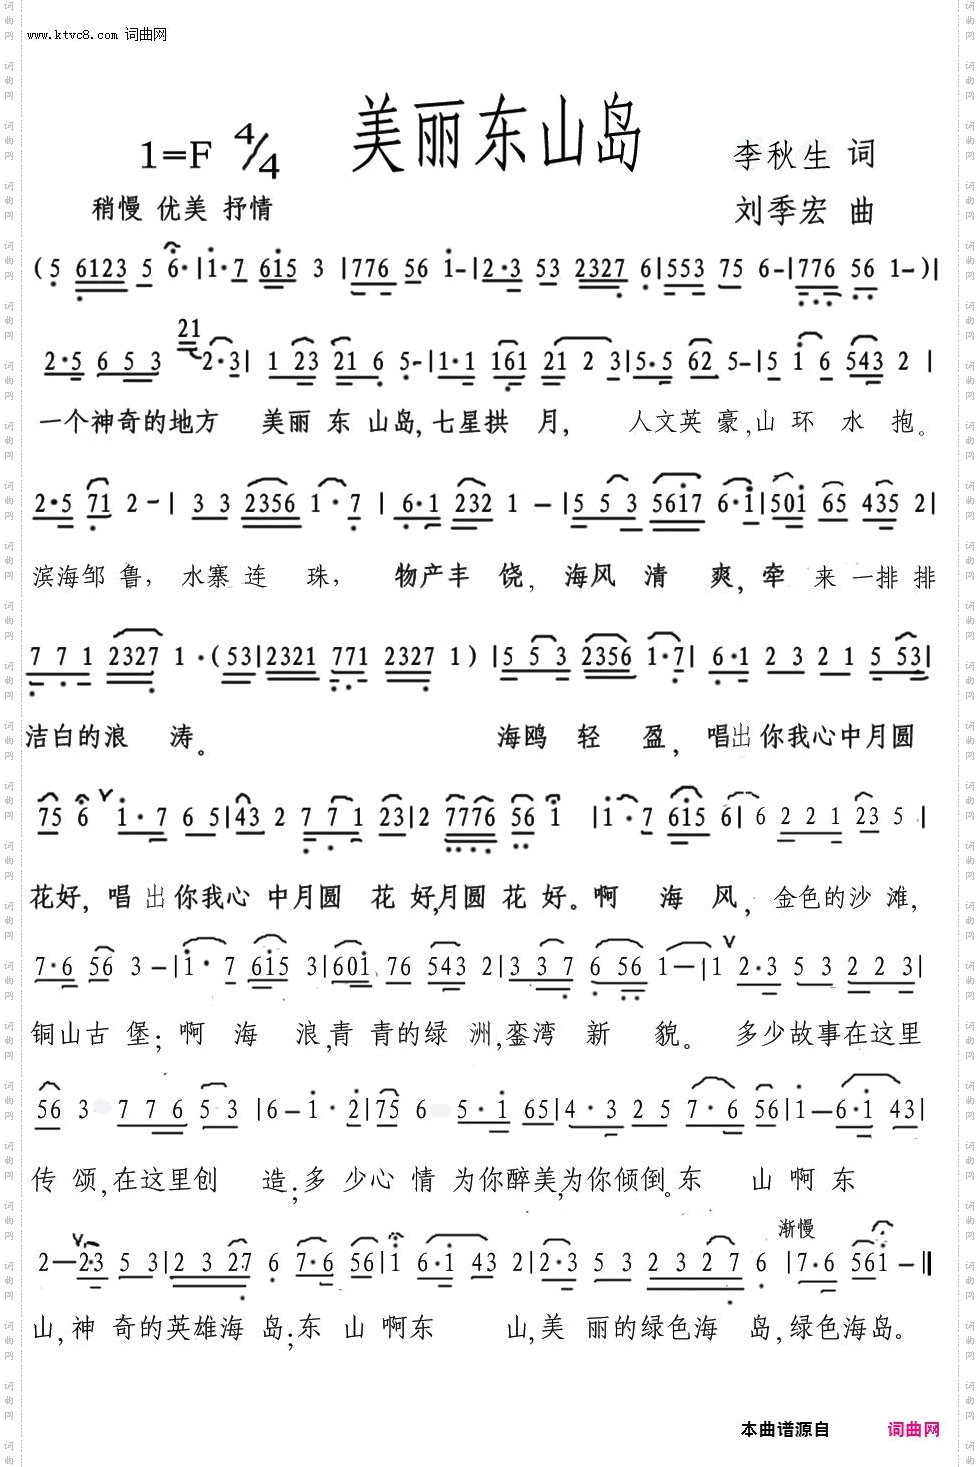 www.ktvc8.com 词曲网
美丽东山岛
1=F 4/4
李秋生 词
稍慢 优美 抒情
刘季宏 曲
(5 6123 5 6·|1·7 615 3|776 56 1-|2·3 53 2327 6|553 75 6-|776 56 1-)|
21
2·5 6 5 3 2·3|1 23 21 6 5-|1·1 161 21 2 3|5·5 62 5-|5 1 6 543 2|
一个神奇的地方 美丽 东 山岛,七星拱 月, 人文英 豪,山 环 水 抱。
2·5 71 2-|3 3 2356 1·7|6·1 232 1-|5 5 3 5617 6·1|501 65 435 2|
滨海邹 鲁, 水寨 连 珠, 物产丰 饶, 海风 清 爽,牵 来 一排 排
7 7 1 2327 1·(53|2321 771 2327 1)|5 5 3 2356 1·7|6·1 2 3 2 1 5 53|
洁白的浪 涛。 海鸥 轻 盈, 唱出你我心中月圆
75 6 ∨ 1·7 6 5|43 2 7 7 1 23|2 7776 56 1|1·7 615 6|6 2 2 1 23 5|
花好, 唱 出你我心 中月圆 花 好,月圆 花 好。啊 海 风, 金色的沙 滩,
7·6 56 3-|1·7 615 3|601 76 543 2|3 3 7 6 56 1-|1 ∨ 2·3 5 3 2 2 3|
铜山古 堡; 啊 海 浪,青 青的绿 洲,銮湾 新 貌。 多少故事在这里
56 3 7 7 6 5 3|6-1·2|75 6 5·1 65|4·3 2 5 7·6 56|1-6·1 43|
传 颂,在这里创 造;多 少心 情 为你醉美,为你倾倒。东 山 啊 东
渐慢
2-∨2·3 5 3|2 3 27 6 7·6 56|1 6·1 43 2|2·3 5 3 2 3 2 7 6|7·6 561-‖
山,神 奇的英雄海 岛;东 山 啊东 山,美 丽的绿色海 岛,绿色海岛。
本曲谱源自 词曲网